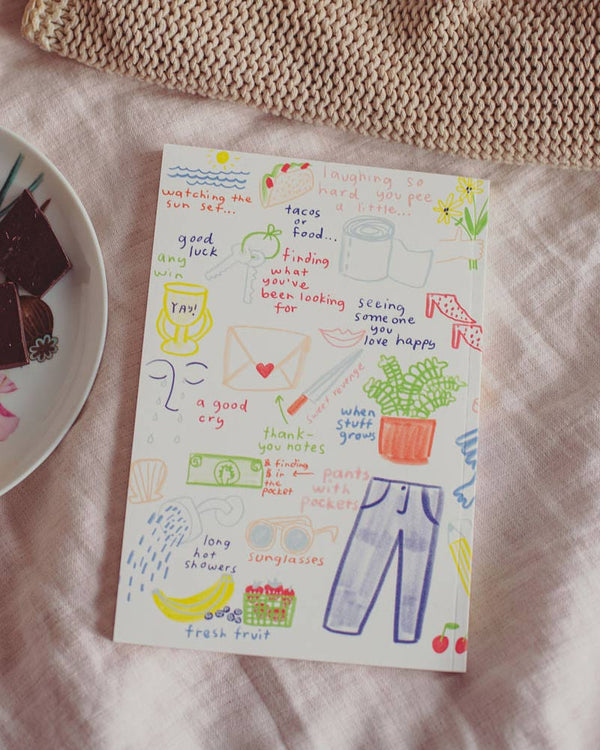 watching the
sun set...
laughing so
hard you pee
a little...
tacos
or
food...
good
luck
any
win
YAY!
finding
what
you've
been looking
for
seeing
someone
you
love happy
sweet revenge
a good
cry
thank-
you notes
when
stuff
grows
& finding
$ in
the
pocket
pants
with
pockets
long
hot
showers
sunglasses
fresh fruit